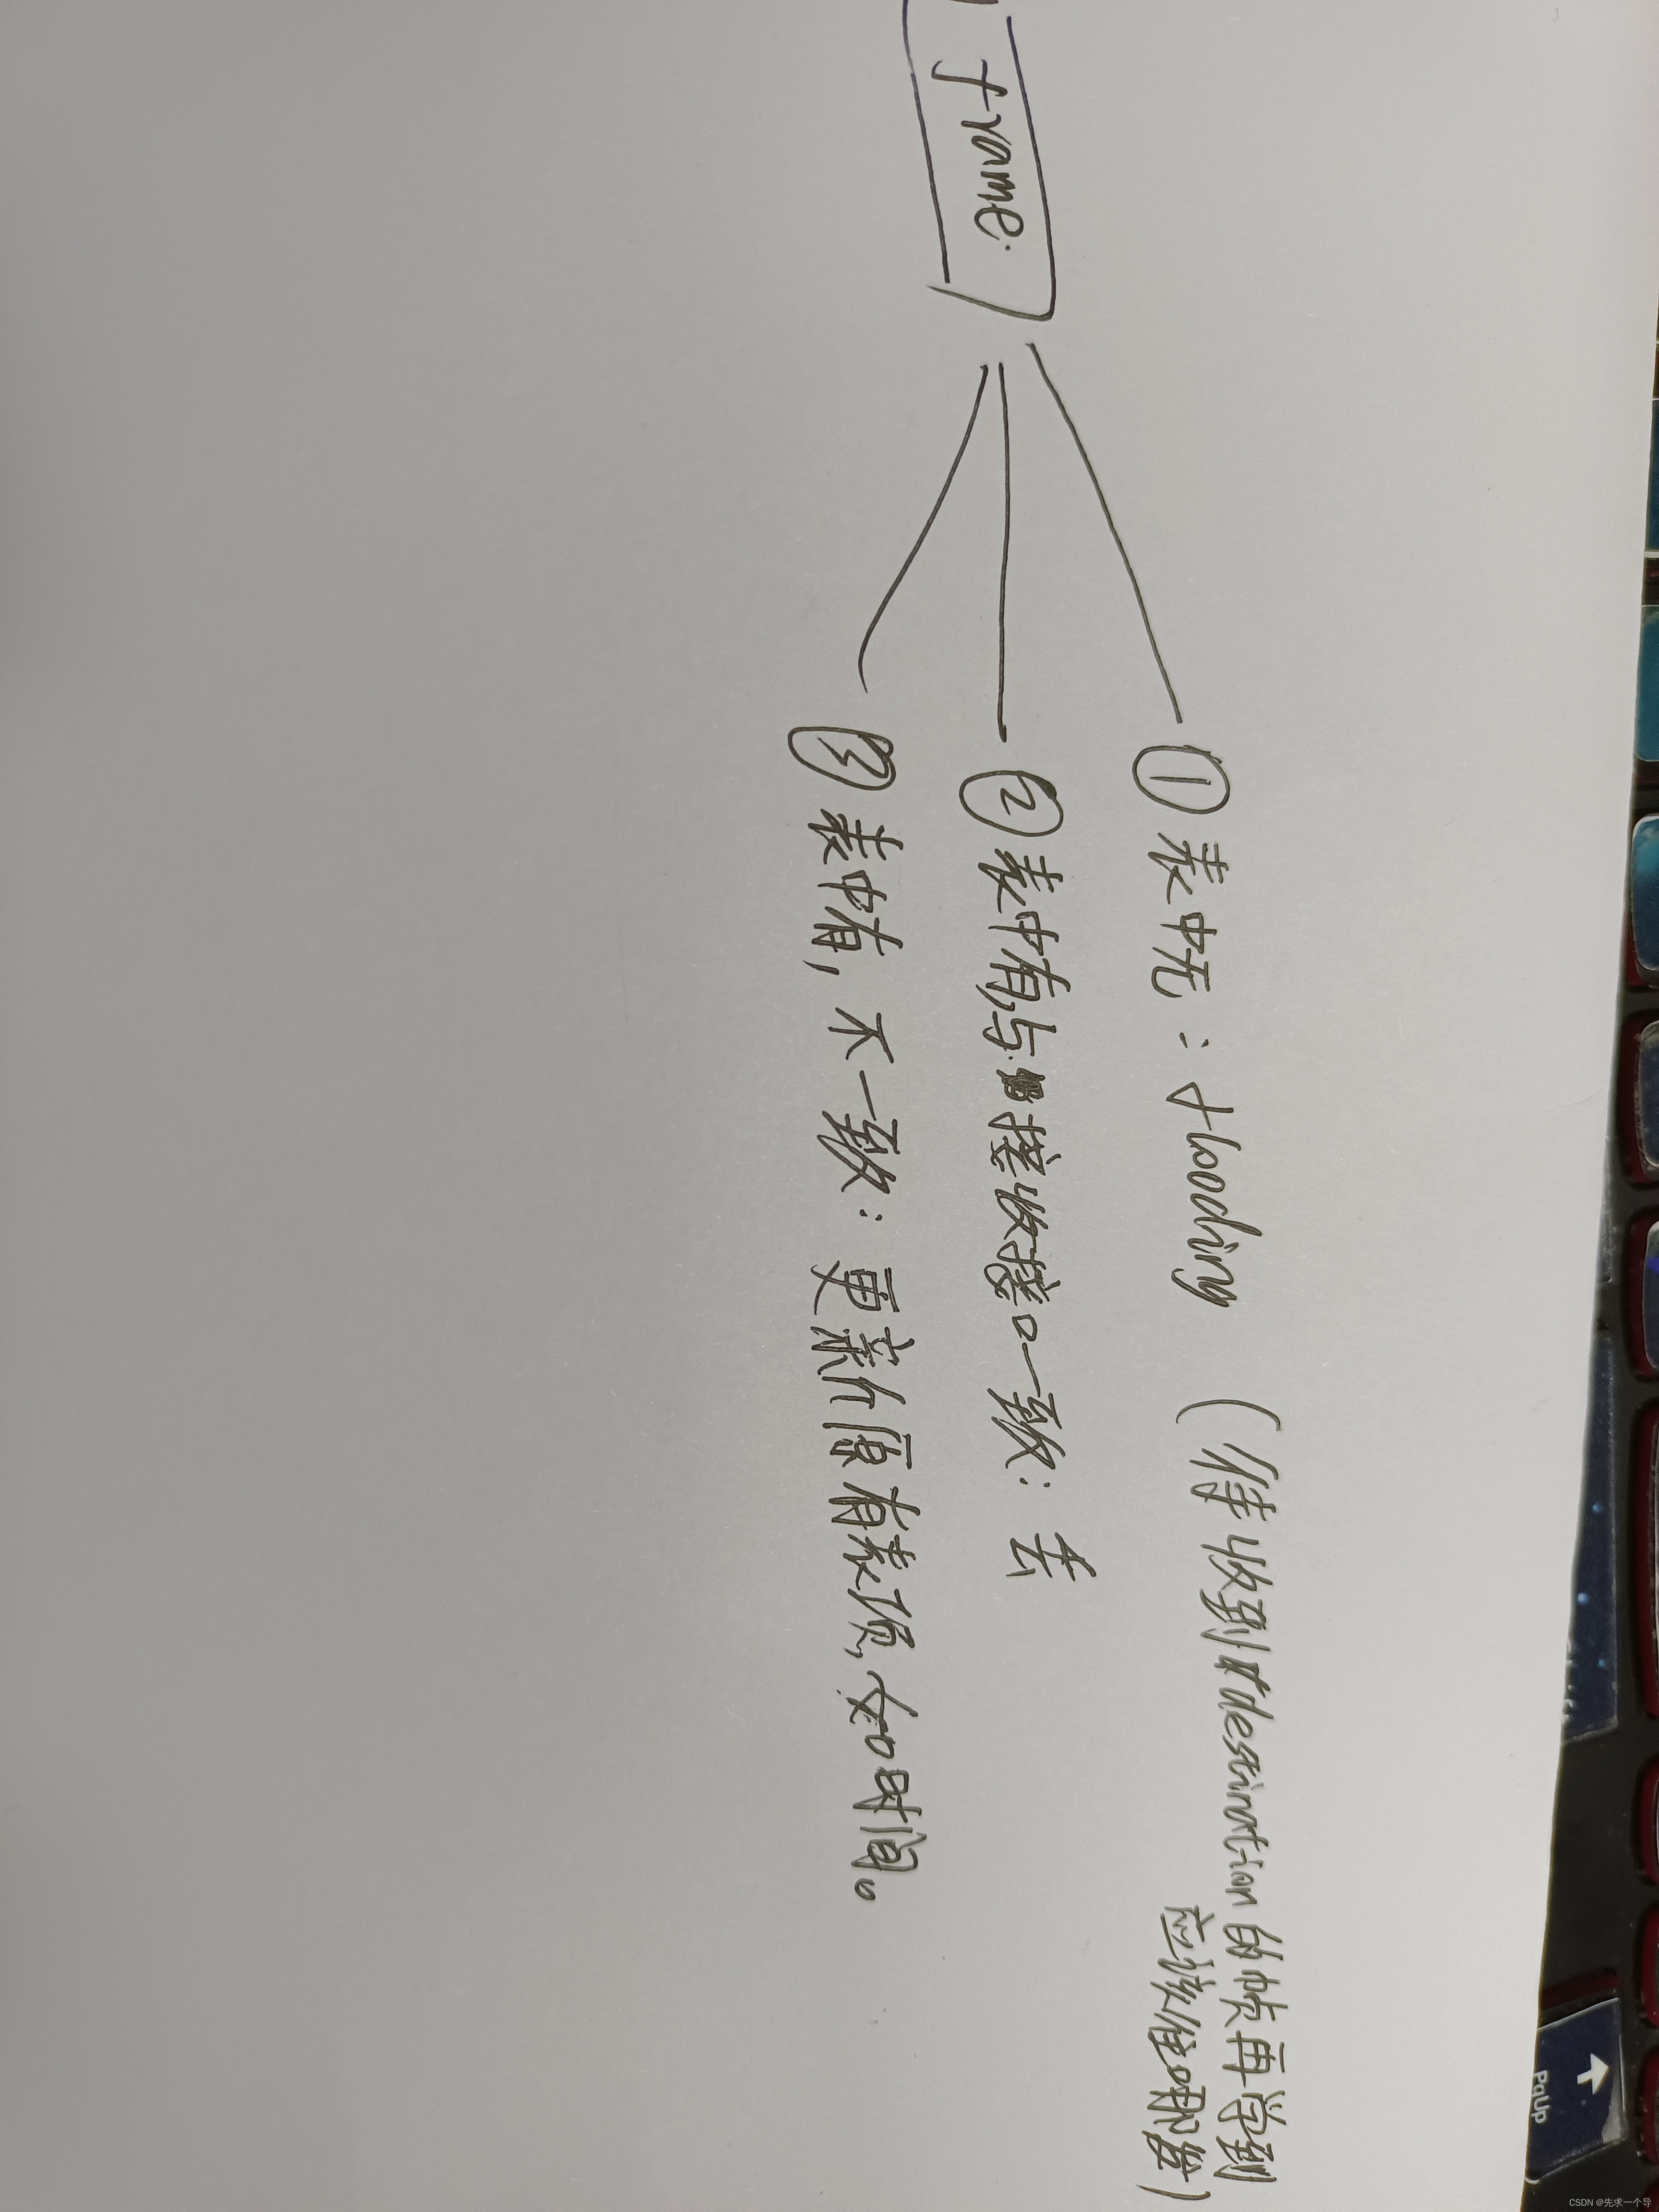 frame.
① 表中无：flooding （待收到destination的帧再学到
应该往哪发）
② 表中有,与接收接口一致：丢
③ 表中有，不一致：更新原有表项,如时间。
PgUp
CSDN @先求一个导